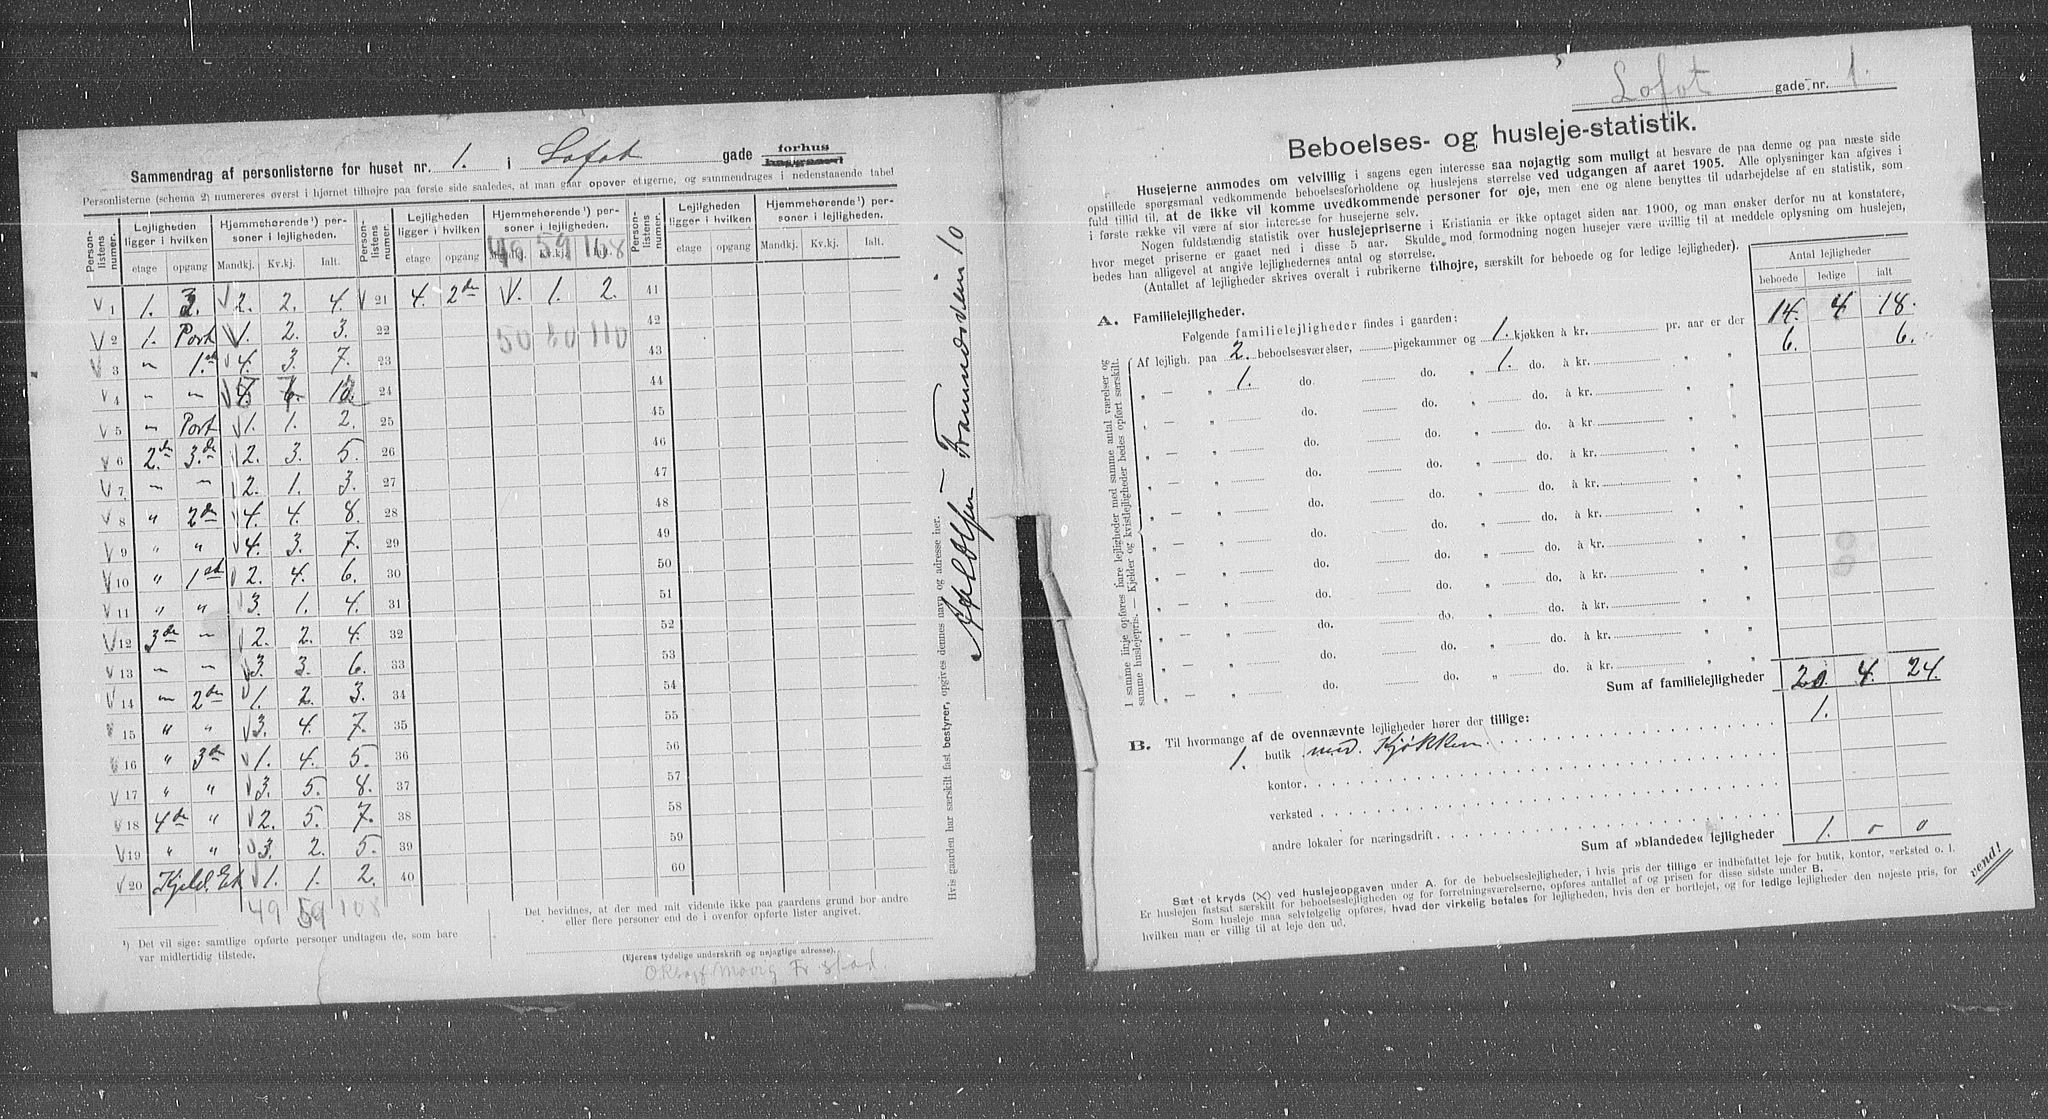 Sammendrag af personlisterne for huset nr. 1. i Lofot gade forhus
Personlisterne (schema 2) numereres øverst i hjørnet tilhøjre paa første side saaledes, at man gaar opover etagerne, og sammendrages i nedenstaaende tabel
Person-listens nummer. Lejligheden ligger i hvilken Hjemmehørende¹) personer i lejligheden. Person-listens nummer. Lejligheden ligger i hvilken Hjemmehørende¹) personer i lejligheden. Person-listens nummer. Lejligheden ligger i hvilken Hjemmehørende¹) personer i lejligheden.
49 59 108
etage opgang Mandkj. Kv.kj. Ialt. etage opgang Mandkj. Kv.kj. Ialt. etage opgang Mandkj. Kv.kj. Ialt.
V 1 1. 2. V 2. 2. 4. V 21 4. 2den V 1. 2. 41
V 2 1. Port V 1. 2. 3. 22 50 60 110 42
V 3 " 1st V 4. 3. 7. 23 43
V 4 " " V 24 44
V 5 " Port V 1. 1. 2. 25 45
V 6 2den 3de V 2. 3. 5. 26 46
V 7 " " V 2. 1. 3. 27 47
V 8 " 2den V 4. 4. 8. 28 48
V 9 " " V 4. 3. 7. 29 49
V 10 " 1st V 2. 4. 6. 30 50
V 11 " " V 3. 1. 4. 31 51
V 12 3de " V 2. 2. 4. 32 52
V 13 " " V 3. 3. 6. 33 53
V 14 " 2den V 1. 2. 3. 34 54
V 15 " " V 3. 4. 7. 35 55
V 16 " 3de V 1. 4. 5. 36 56
V 17 " " V 3. 5. 8. 37 57
V 18 4de " V 2. 5. 7. 38 58
V 19 " " V 3. 2. 5. 39 59
V 20 Kjeld. Et V 1. 1. 2. 40 60
49 59 108
¹) Det vil sige: samtlige opførte personer undtagen de, som bare
var midlertidig tilstede.
Det bevidnes, at der med mit vidende ikke paa gaardens grund bor andre
eller flere personer end de i ovenfor opførte lister angivet.
(Ejerens tydelige underskrift og nøjagtige adresse).
Hvis gaarden har særskilt fast bestyrer, opgives dennes navn og adresse her.
Lofot gade nr. 1.
Beboelses- og husleje-statistik.
Husejerne anmodes om velvillig i sagens egen interesse saa nøjagtig som muligt at besvare de paa denne og paa næste side
opstillede spørgsmaal vedkommende beboelsesforholdene og huslejens størrelse ved udgangen af aaret 1905. Alle oplysninger kan afgives i
fuld tillid til, at de ikke vil komme uvedkommende personer for øje, men ene og alene benyttes til udarbejdelse af en statistik, som
i første række vil være af stor interesse for husejerne selv.
Nogen fuldstændig statistik over huslejepriserne i Kristiania er ikke optaget siden aar 1900, og man ønsker derfor nu at konstatere,
hvor meget priserne er gaaet ned i disse 5 aar. Skulde mod formodning nogen husejer være uvillig til at meddele oplysning om huslejen,
bedes han alligevel at angive lejlighedernes antal og størrelse.
(Antallet af lejligheder skrives overalt i rubrikerne tilhøjre, særskilt for beboede og for ledige lejligheder).
Antal lejligheder
beboede ledige ialt
A. Familielejligheder.
Følgende familielejligheder findes i gaarden:
Af lejligh. paa 2. beboelsesværelser, pigekammer og 1. kjøkken à kr. pr. aar er der 14. 4 18.
" — " 1. do. do. " 1. do. à kr. " " 6. 6.
" — " do. do. " do. à kr. " "
" — " do. do. " do. à kr. " "
" — " do. do. " do. à kr. " "
" — " do. do. " do. à kr. " "
" — " do. do. " do. à kr. " "
" — " do. do. " do. à kr. " "
" — " do. do. " do. à kr. " "
" — " do. do. " do. à kr. " "
" — " do. do. " do. à kr. " "
" — " do. do. " do. à kr. " "
I samme linje opføres bare lejligheder med samme antal værelser og
samme huslejepris. — Kjelder og kvistlejligheder bedes opført særskilt.
Sum af familielejligheder 20. 4. 24.
B. Til hvormange af de ovennævnte lejligheder hører der tillige:
1. butik med Kjøkken 1.
kontor
verksted
andre lokaler for næringsdrift
Sum af »blandede« lejligheder 1. 0 0
Sæt et kryds (X) ved huslejeopgaven under A. for de beboelseslejligheder, i hvis pris der tillige er indbefattet leje for butik, kontor, verksted o. l.
Er huslejen fastsat særskilt for beboelseslejligheden og for forretningsværelserne, opføres antallet af og prisen for disse sidste under B.
Som husleje maa selvfølgelig opføres, hvad der virkelig betales for lejligheden, hvis den er bortlejet, og for ledige lejligheder den nøjeste pris, for
hvilken man er villig til at leje den ud.
vend!